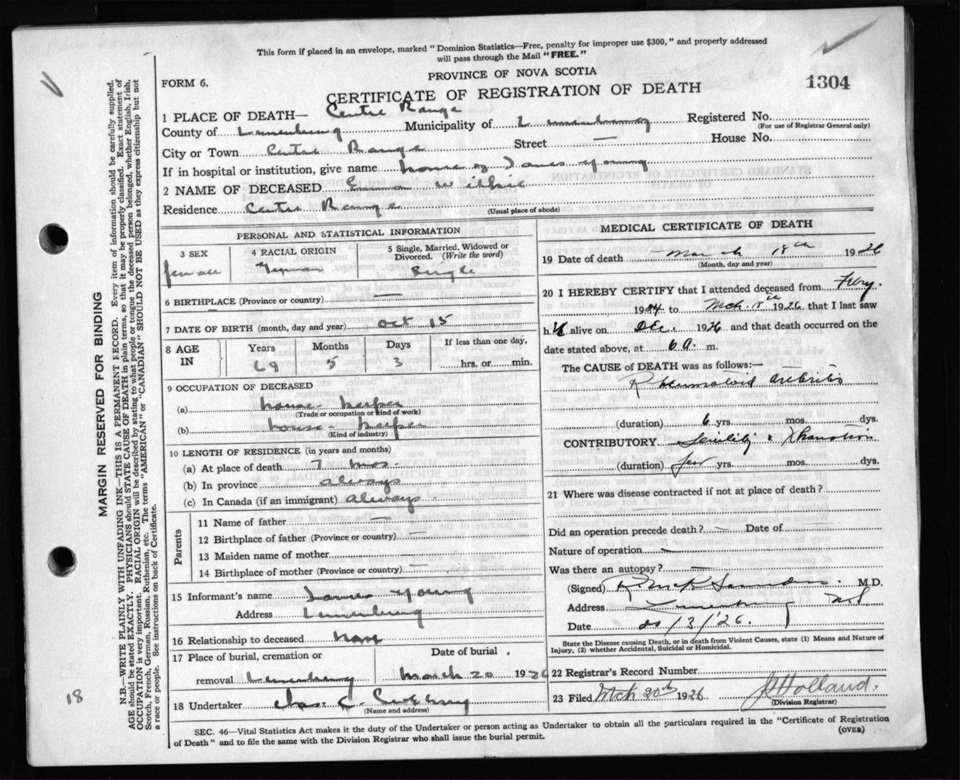 This form if placed in an envelope, marked "Dominion Statistics—Free, penalty for improper use $300," and properly addressed
will pass through the Mail "FREE."
PROVINCE OF NOVA SCOTIA
FORM 6.
CERTIFICATE OF REGISTRATION OF DEATH
1304
1 PLACE OF DEATH— Centre Range
County of Lunenburg Municipality of Lunenburg Registered No.
(For use of Registrar General only)
City or Town Centre Range Street — House No.
If in hospital or institution, give name house of James Young
2 NAME OF DECEASED Emma Wilkie
Residence Centre Range
(Usual place of abode)
PERSONAL AND STATISTICAL INFORMATION
3 SEX 4 RACIAL ORIGIN 5 Single, Married, Widowed or
Divorced. (Write the word)
female German Single
6 BIRTHPLACE (Province or country) —
7 DATE OF BIRTH (month, day and year) Oct 15
8 AGE IN Years Months Days If less than one day,
69 5 3 hrs. or min.
9 OCCUPATION OF DECEASED
(a) house-keeper
(Trade or occupation or kind of work)
(b) house-keeper
(Kind of industry)
10 LENGTH OF RESIDENCE (in years and months)
(a) At place of death 7 mos.
(b) In province always
(c) In Canada (if an immigrant) always
Parents
11 Name of father —
12 Birthplace of father (Province or country) —
13 Maiden name of mother
14 Birthplace of mother (Province or country) —
15 Informant's name James Young
Address Lunenburg
16 Relationship to deceased none
17 Place of burial, cremation or Date of burial
removal Lunenburg March 20 1926
18 Undertaker Chas. C.
(Name and address)
MEDICAL CERTIFICATE OF DEATH
19 Date of death March 18th 1926
(Month, day and year)
20 I HEREBY CERTIFY that I attended deceased from Febry.
1924 to Mch. 18th 1926, that I last saw
h alive on Dec. 1926 and that death occurred on the
date stated above, at 6 a. m.
The CAUSE of DEATH was as follows:—
Rheumatoid Arthritis
(duration) 6 yrs. mos. dys.
CONTRIBUTORY Senility & Exhaustion
(duration) few yrs. mos. dys.
21 Where was disease contracted if not at place of death?
Did an operation precede death? — Date of
Nature of operation —
Was there an autopsy? —
(Signed) M.D.
Address Lunenburg NS
Date 20/3/'26.
State the Disease causing Death, or in death from Violent Causes, state (1) Means and Nature of
Injury, (2) whether Accidental, Suicidal or Homicidal.
22 Registrar's Record Number
23 Filed Mch 20th 1926 Holland.
(Division Registrar)
SEC. 46—Vital Statistics Act makes it the duty of the Undertaker or person acting as Undertaker to obtain all the particulars required in the "Certificate of Registration
of Death" and to file the same with the Division Registrar who shall issue the burial permit.
(OVER)
MARGIN RESERVED FOR BINDING
N.B.—WRITE PLAINLY WITH UNFADING INK—THIS IS A PERMANENT RECORD. Every item of information should be carefully supplied.
AGE should be stated EXACTLY. PHYSICIANS should STATE CAUSE OF DEATH in plain terms, so that it may be properly classified. Exact statement of
OCCUPATION is very important. RACIAL ORIGIN will be described by stating to what people or tongue the deceased person belonged, whether English, Irish,
Scotch, French, German, Russian, Ruthenian, etc. The terms "AMERICAN" or "CANADIAN" SHOULD NOT BE USED as they express citizenship but not
a race or people. See instructions on back of Certificate.
18